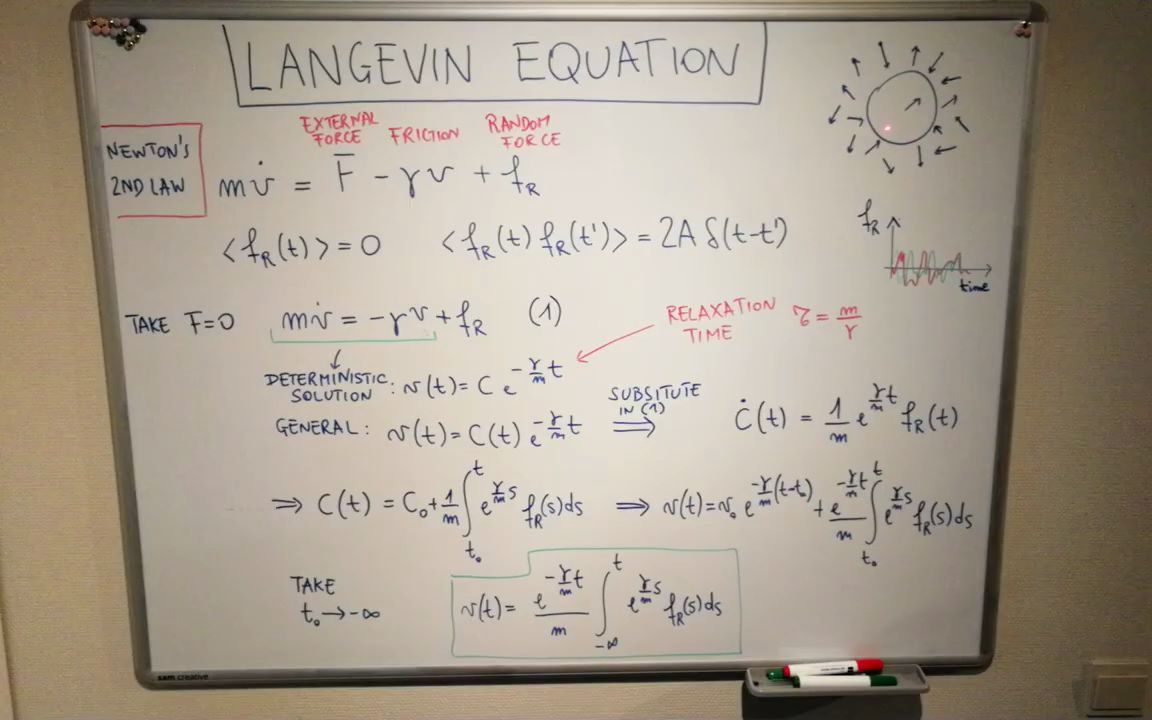 LANGEVIN EQUATION
EXTERNAL FORCE FRICTION RANDOM FORCE
NEWTON'S 2ND LAW
mv̇ = F̄ − γv + f_R
⟨f_R(t)⟩ = 0 ⟨f_R(t) f_R(t')⟩ = 2A δ(t-t')
f_R
time
TAKE F=0 mv̇ = −γv + f_R (1)
RELAXATION TIME τ = m/γ
DETERMINISTIC SOLUTION : v(t) = C e^{-γ/m t}
GENERAL : v(t) = C(t) e^{-γ/m t} SUBSITUTE IN (1) ⟹ Ċ(t) = 1/m e^{γ/m t} f_R(t)
⟹ C(t) = C₀ + 1/m ∫_{t₀}^{t} e^{γ/m s} f_R(s)ds ⟹ v(t) = v₀ e^{-γ/m (t-t₀)} + e^{-γ/m t}/m ∫_{t₀}^{t} e^{γ/m s} f_R(s)ds
TAKE
t₀ → -∞
v(t) = e^{-γ/m t}/m ∫_{-∞}^{t} e^{γ/m s} f_R(s)ds
sam creative